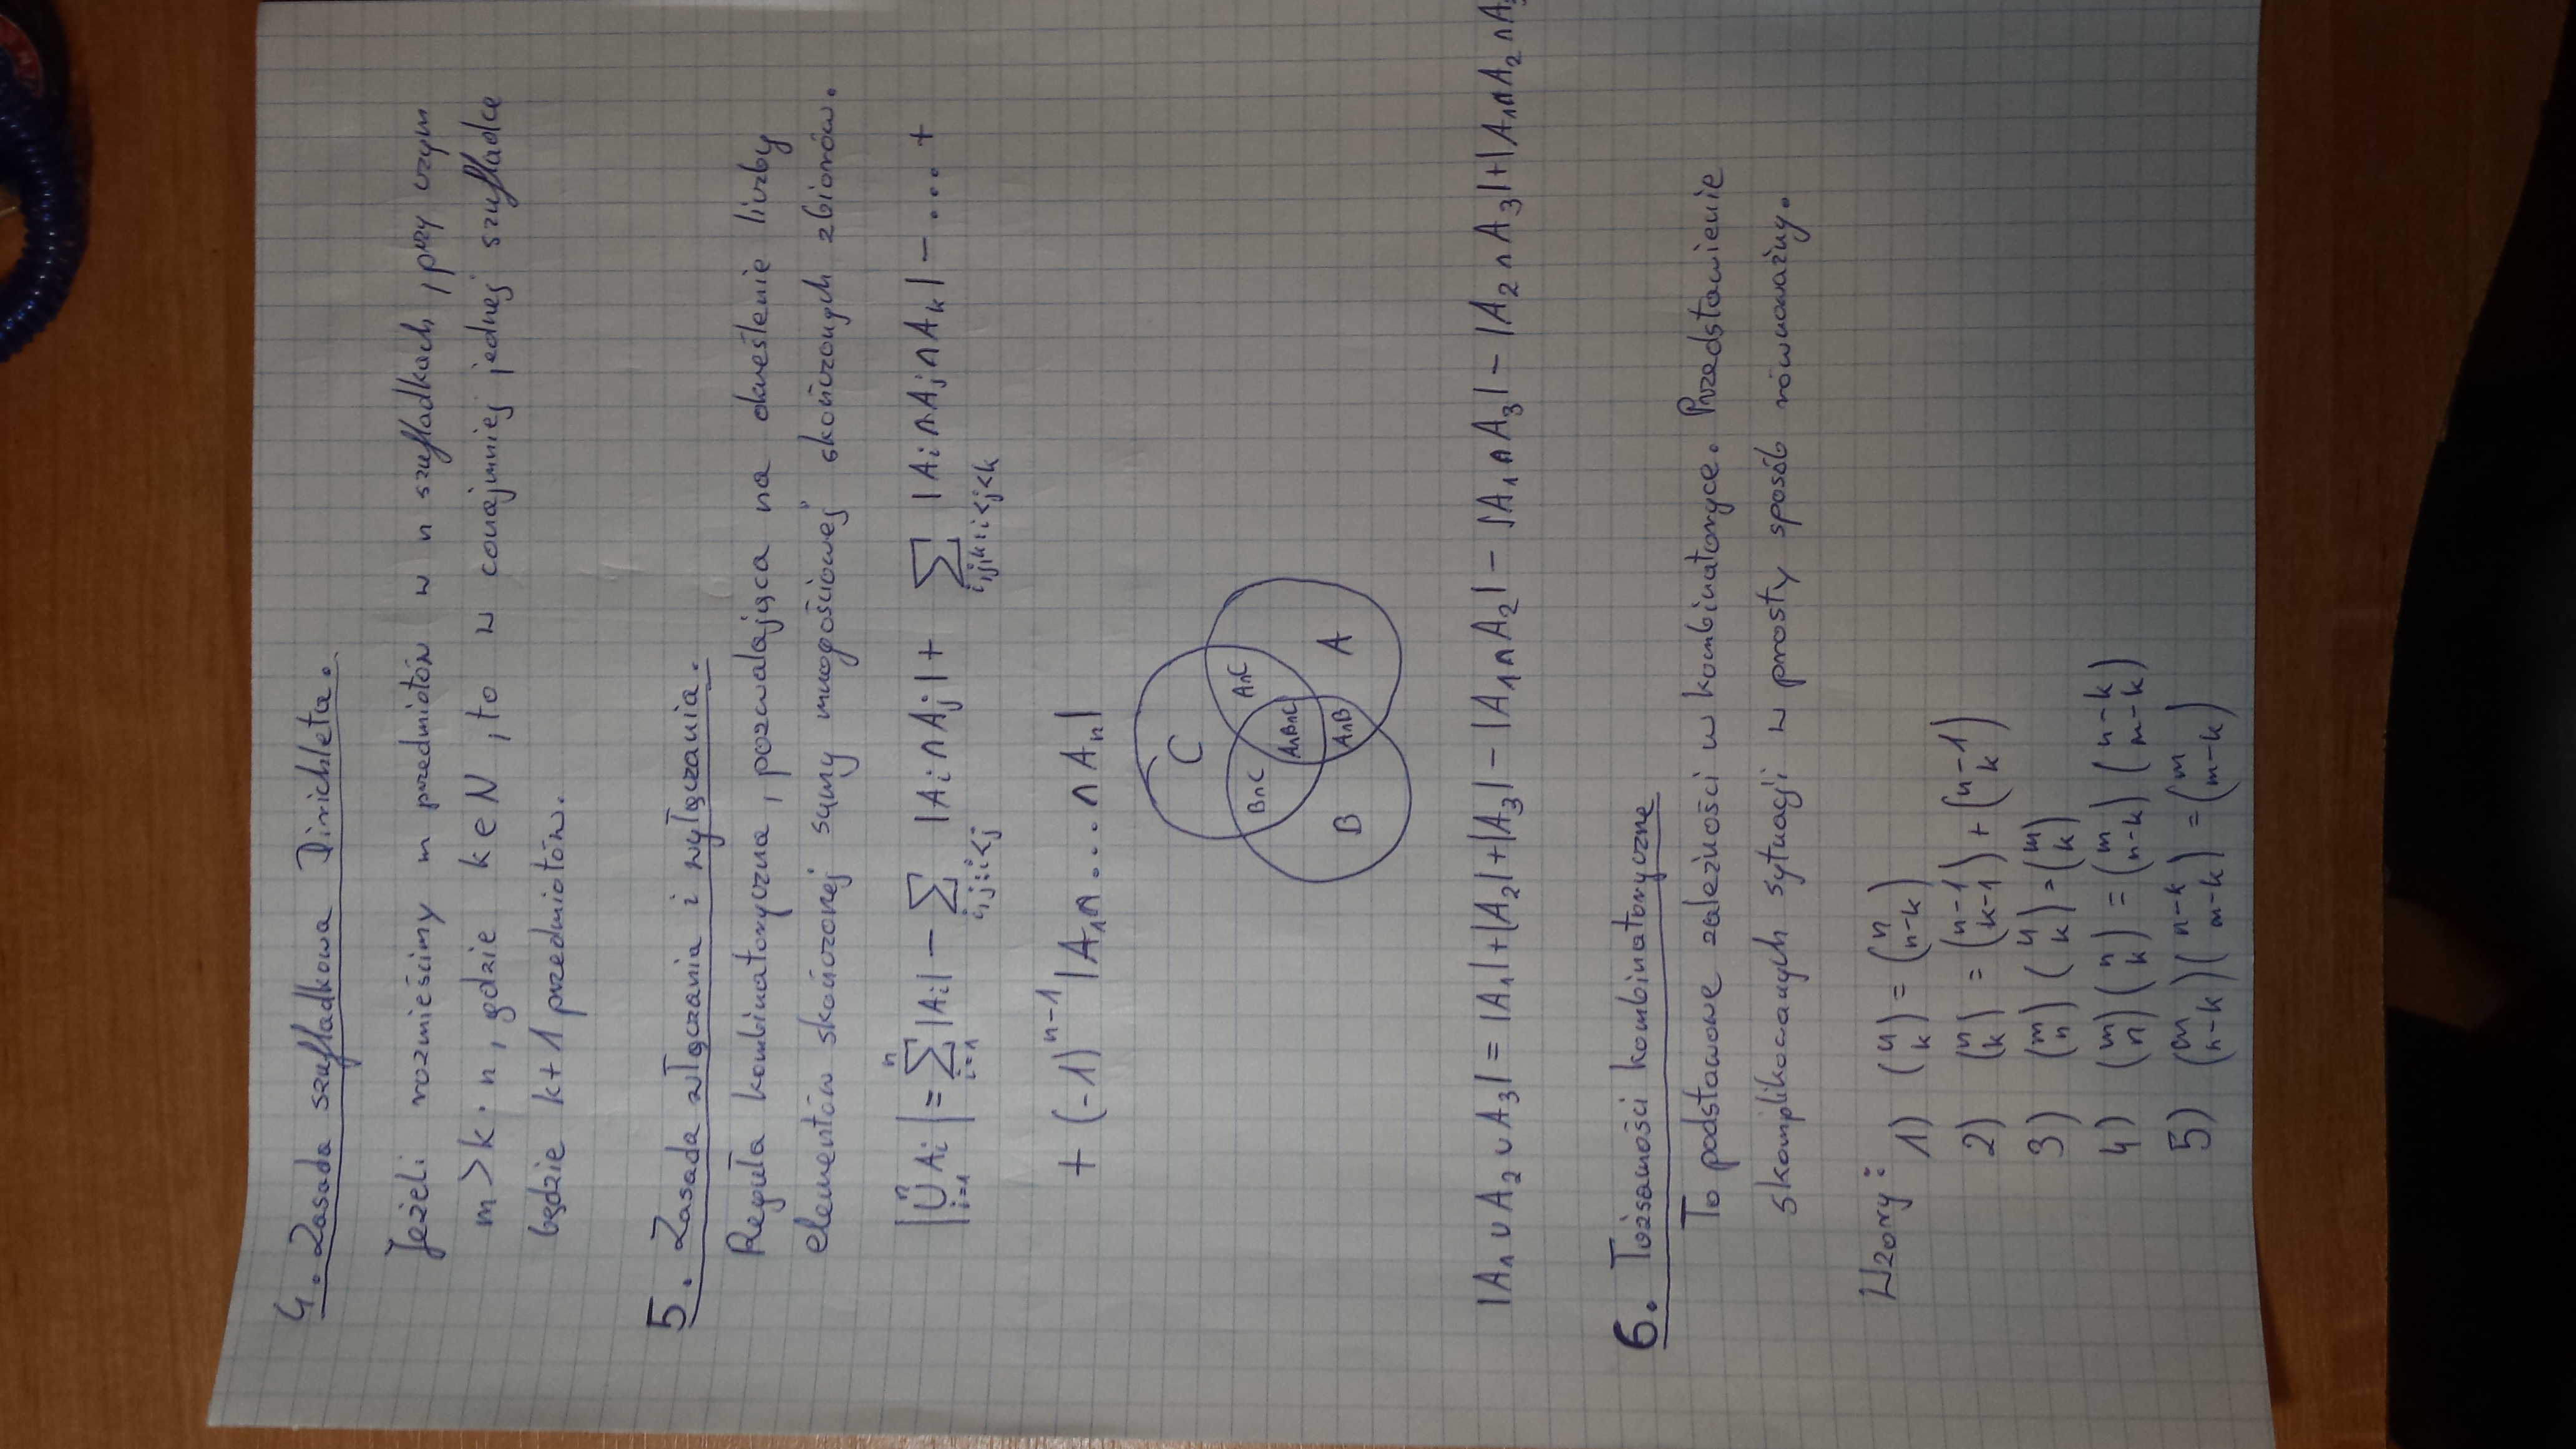 4. Zasada szufladkowa Dirichleta.
Jeżeli rozmieścimy m przedmiotów w n szufladkach, przy czym
m > k · n, gdzie k ∈ N, to w conajmniej jednej szufladce
będzie k+1 przedmiotów.
5. Zasada włączania i wyłączania.
Reguła kombinatoryczna, pozwalająca na określenie liczby
elementów skończonej sumy mnogościowej skończonych zbiorów.
|⋃_{i=1}^{n} A_i| = ∑_{i=1}^{n} |A_i| − ∑_{i,j:i<j} |A_i ∩ A_j| + ∑_{i,j,k:i<j<k} |A_i ∩ A_j ∩ A_k| − .... +
+ (-1)^{n-1} |A_1 ∩ ... ∩ A_n|
C
B∩C A∩C
A∩B∩C
B A∩B A
|A_1 ∪ A_2 ∪ A_3| = |A_1| + |A_2| + |A_3| − |A_1 ∩ A_2| − |A_1 ∩ A_3| − |A_2 ∩ A_3| + |A_1 ∩ A_2 ∩ A_3
6. Tożsamości kombinatoryczne
To podstawowe zależności w kombinatoryce. Przedstawienie
skomplikowanych sytuacji w prosty sposób równoważny.
Wzory:
1) (n k) = (n n-k)
2) (n k) = (n-1 k-1) + (n-1 k)
3) (m n) (n k) = (m k)
4) (m n) (n k) = (m n-k) (n-k m-k)
5) (m n-k) (n-k m-k) = (m m-k)